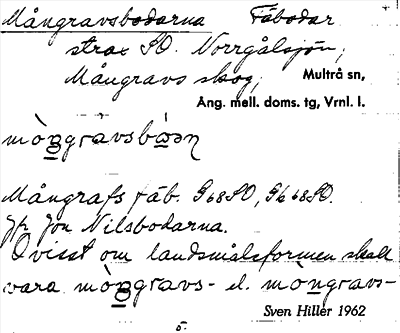 Mångravsbodarna Fäbodar
strax SO. Norrgålsjön,
Mångravs skog, Multrå sn,
Ång. mell. doms. tg, Vrnl. l.
mòn̲gràvsbo̲ən
Mångrafs fäb. G68SO, Gk68SO.
Jfr Jon Nilsbodarna.
Ovisst om landsmålsformen skall
vara mòn̲gravs- el. mòngravs-
Sven Hiller 1962